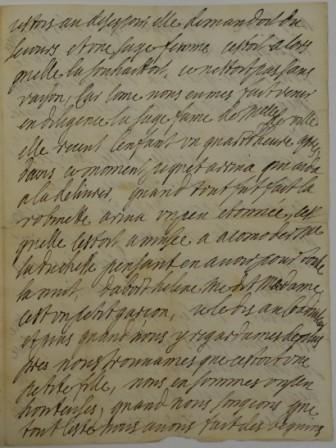 estois au desespoir, elle demandoit du
secours et une sage femme cestoit alors
quelle la souhaittoit, ce nestoit pas sans
raison, car come nous eumes fait venir
en diligence la sage fame de
elle receut lenfant un quart dheure apres
dans ce moment pequet ariva qui aida
a la delivrer, quand tout fut fait la
robinette ariva un peu etonnee, cest
quelle sestoit amusee a acomoder me
la duchesse pensant en avoir pour toute
la nuit, dabord helene me dit madame
cest un petit garson, je le dis au
et puis quand nous y regardames de plus
pres nous trouvames que cestoit une
petite fille, nous en sommes un peu
honteuses, quand nous songeons que
tout leste nous avons fait des beguins